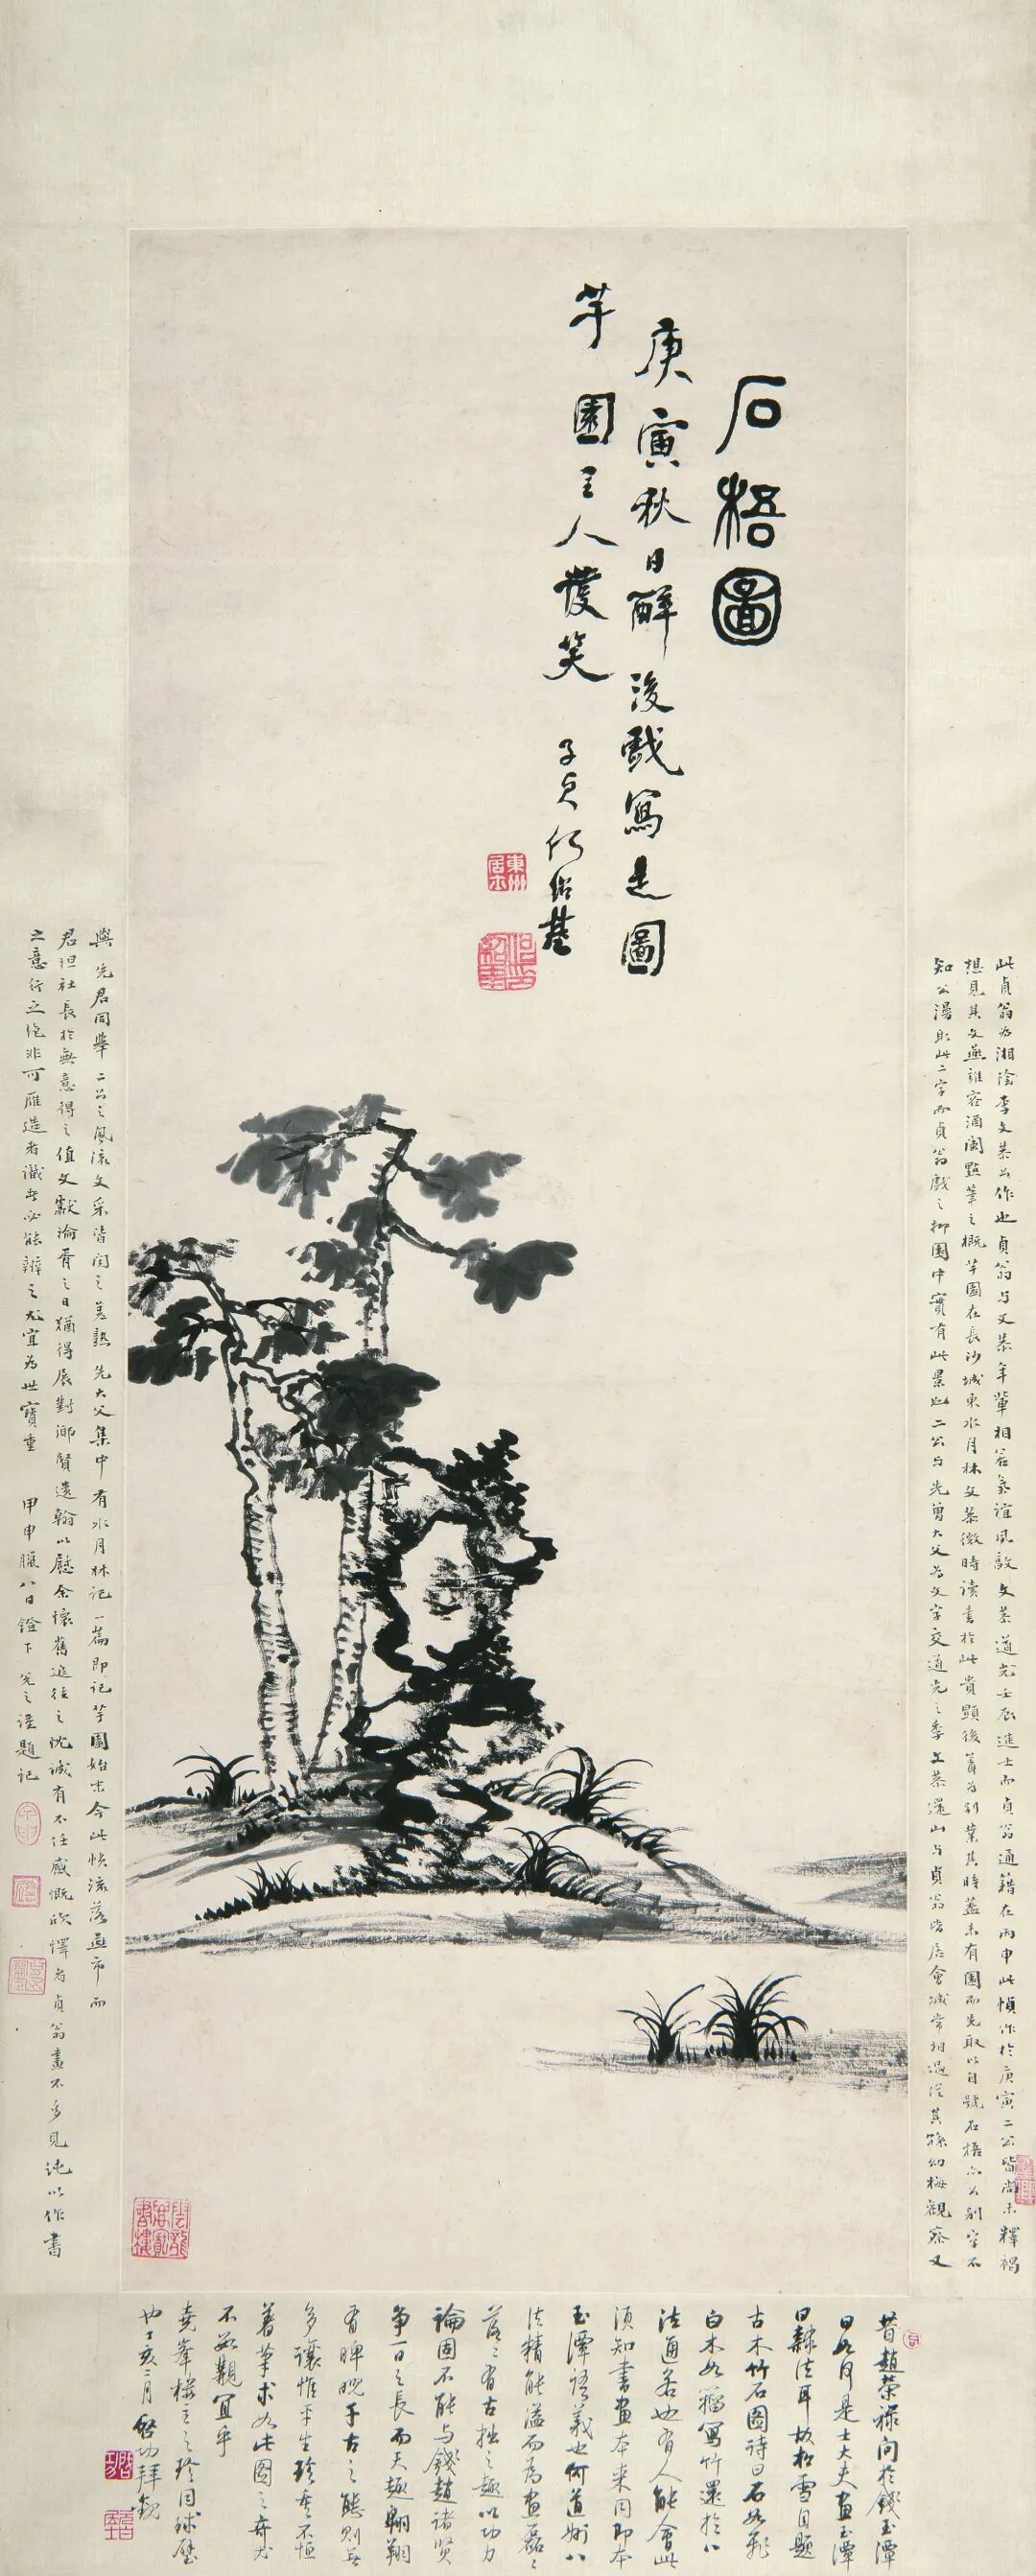 石梧圖
庚寅秋日醉後戲寫是圖
芋園主人發笑 子貞何紹基
東洲居士
何紹基印
此貞翁為湘陰李文恭公作也貞翁與文恭年輩相若氣誼夙敦文恭道光壬辰進士而貞翁通籍在丙申此幀作於庚寅二公皆尚未釋褐
想見其文燕雍容酒闌點筆之概芋園在長沙城東水月林文恭微時讀書於此貴顯後葺為別業其時蓋未有園而先取以自號石梧亦公別字不
知公湯 此二字而貞翁戲之抑園中實有此景也二公與先曾大父為文字交道光之季文恭還山與貞翁皆居會城常相過從其孫幼梅觀察又
與先君同舉二公之風流文采皆聞之甚熟先大父集中有水月林記一篇即記芋園始末今此幀流落燕市而
君坦社長於無意得之值文獻淪胥之日猶得展對鄉賢遺翰以慰余懷舊 往之忱誠有不任感慨欣懌者貞翁畫不多見純以作書
之意行之絕非可雁造者識者必能辨之尤宜為世寶重 甲申臘八日鐙下 題記
昔趙榮祿問於錢玉潭
曰如何是士大夫畫玉潭
曰隸法耳故松雪自題
古木竹石圖詩曰石如飛
白木如籀寫竹還於八
法通若也有人能會此
須知書畫本來同即本
玉潭語義也何道州八
法精能溢而為畫磊磊
落落有古拙之趣以功力
論固不能與錢趙諸賢
爭一日之長而天趣翱翔
有睥睨千古之態則無
多讓惟平生珍重不恒
著筆求如此圖之奇尤
不數覯宜乎
堯峯樓主之珍同球璧
也丁亥二月 啓功拜觀